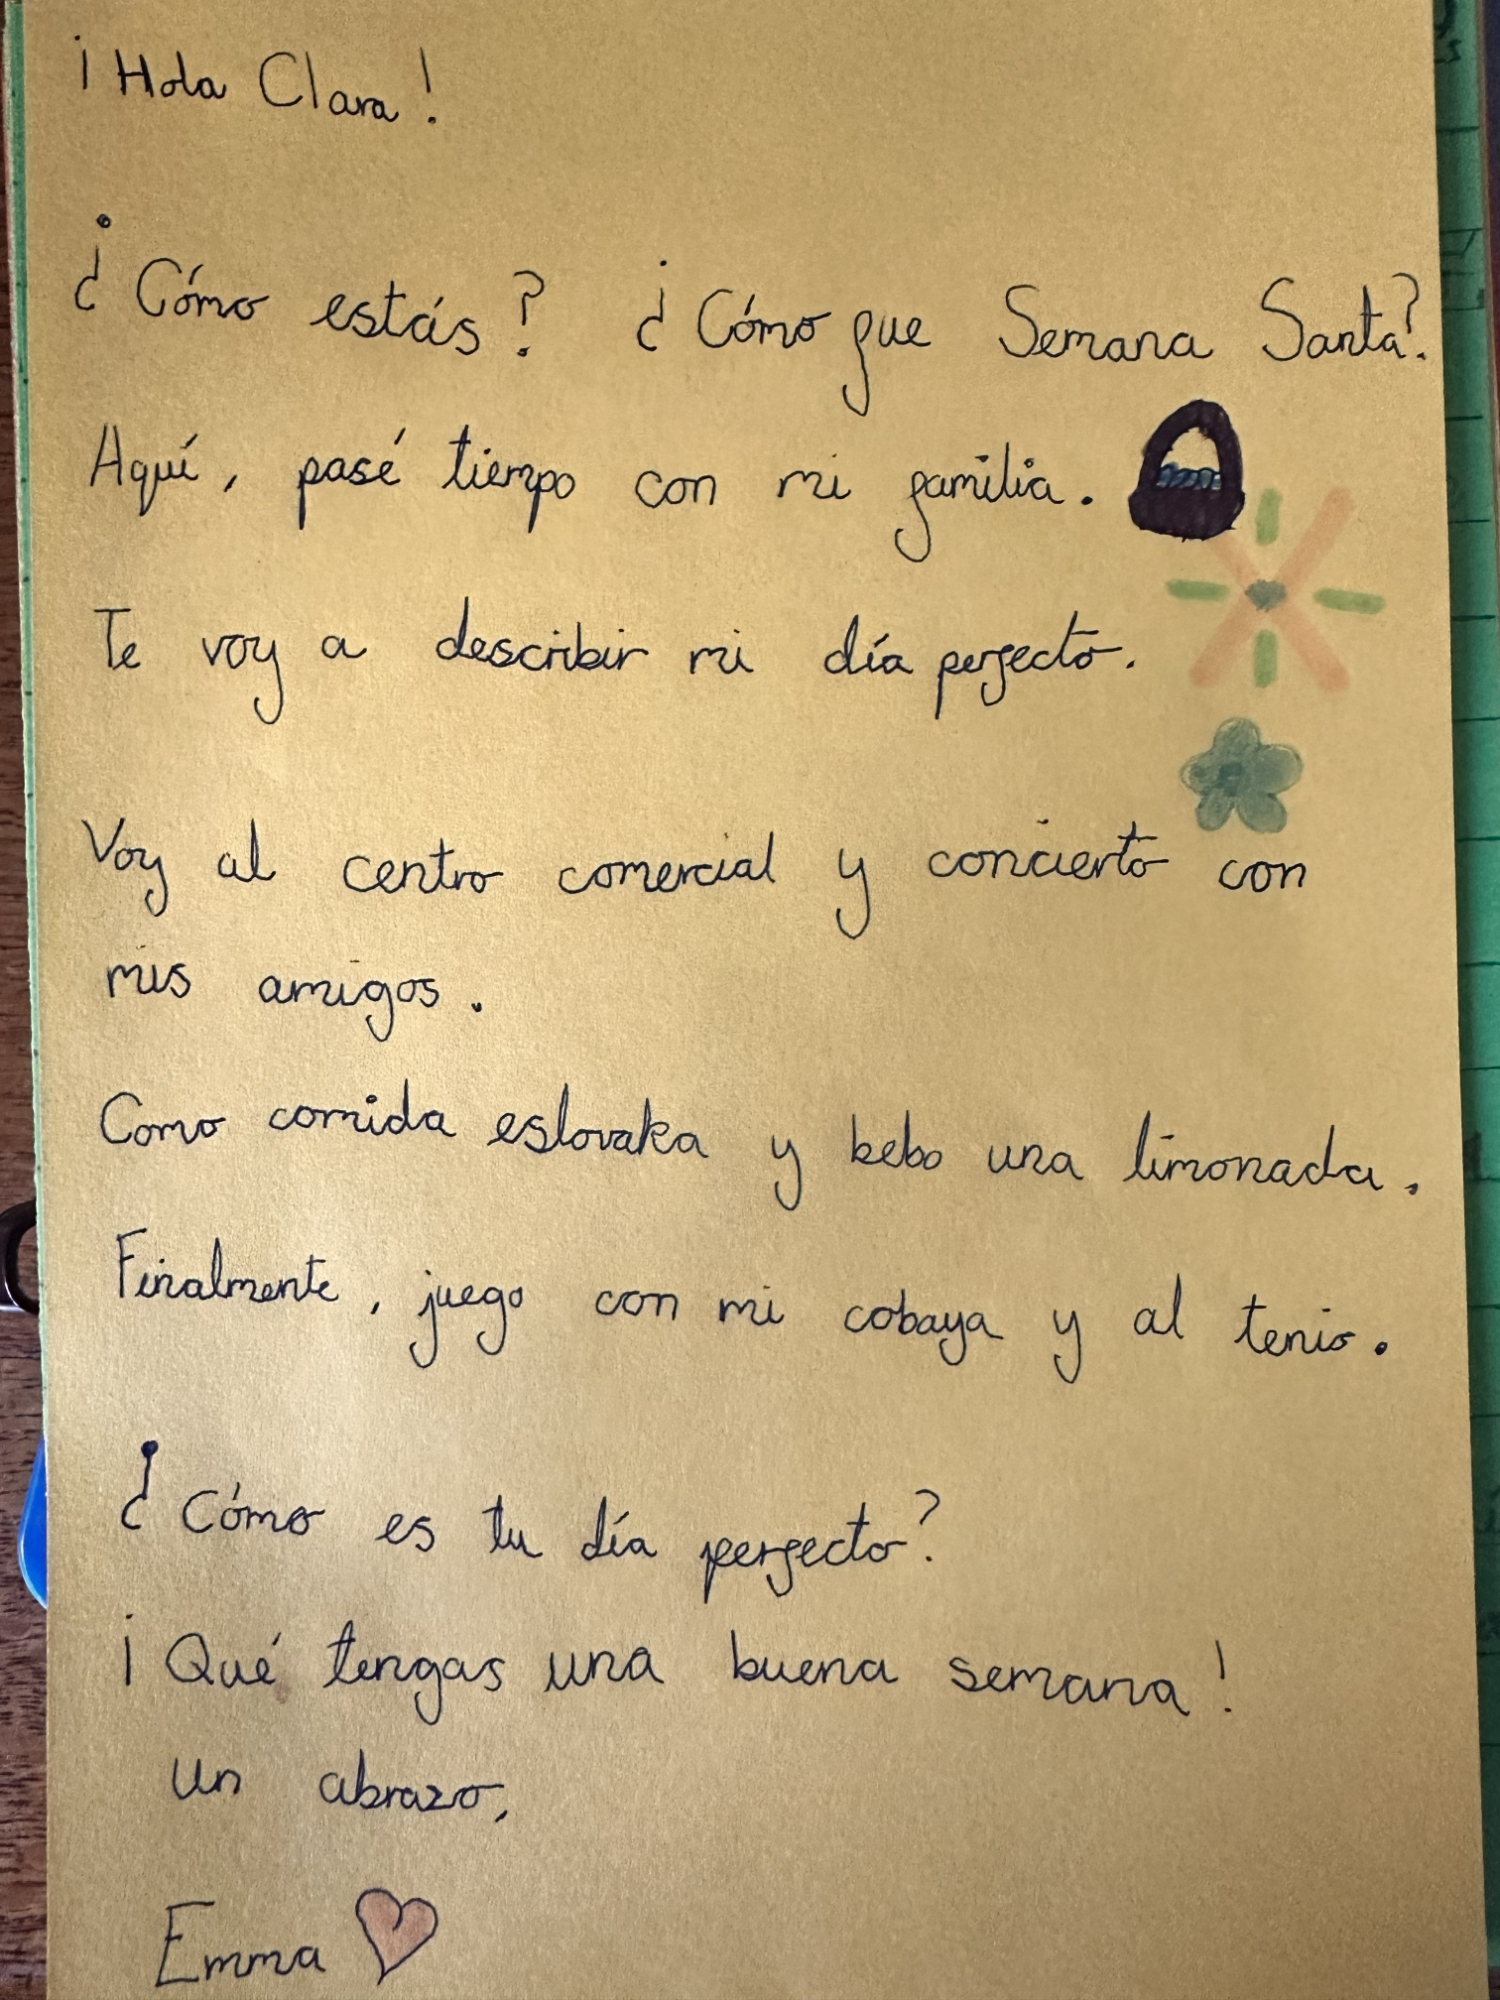 ¡Hola Clara!
¿Cómo estás? ¿Cómo fue Semana Santa?
Aquí, pasé tiempo con mi familia.
Te voy a describir mi día perfecto.
Voy al centro comercial y concierto con
mis amigos.
Como comida eslovaka y bebo una limonada.
Finalmente, juego con mi cobaya y al tenis.
¿Cómo es tu día perfecto?
¡Qué tengas una buena semana!
Un abrazo,
Emma